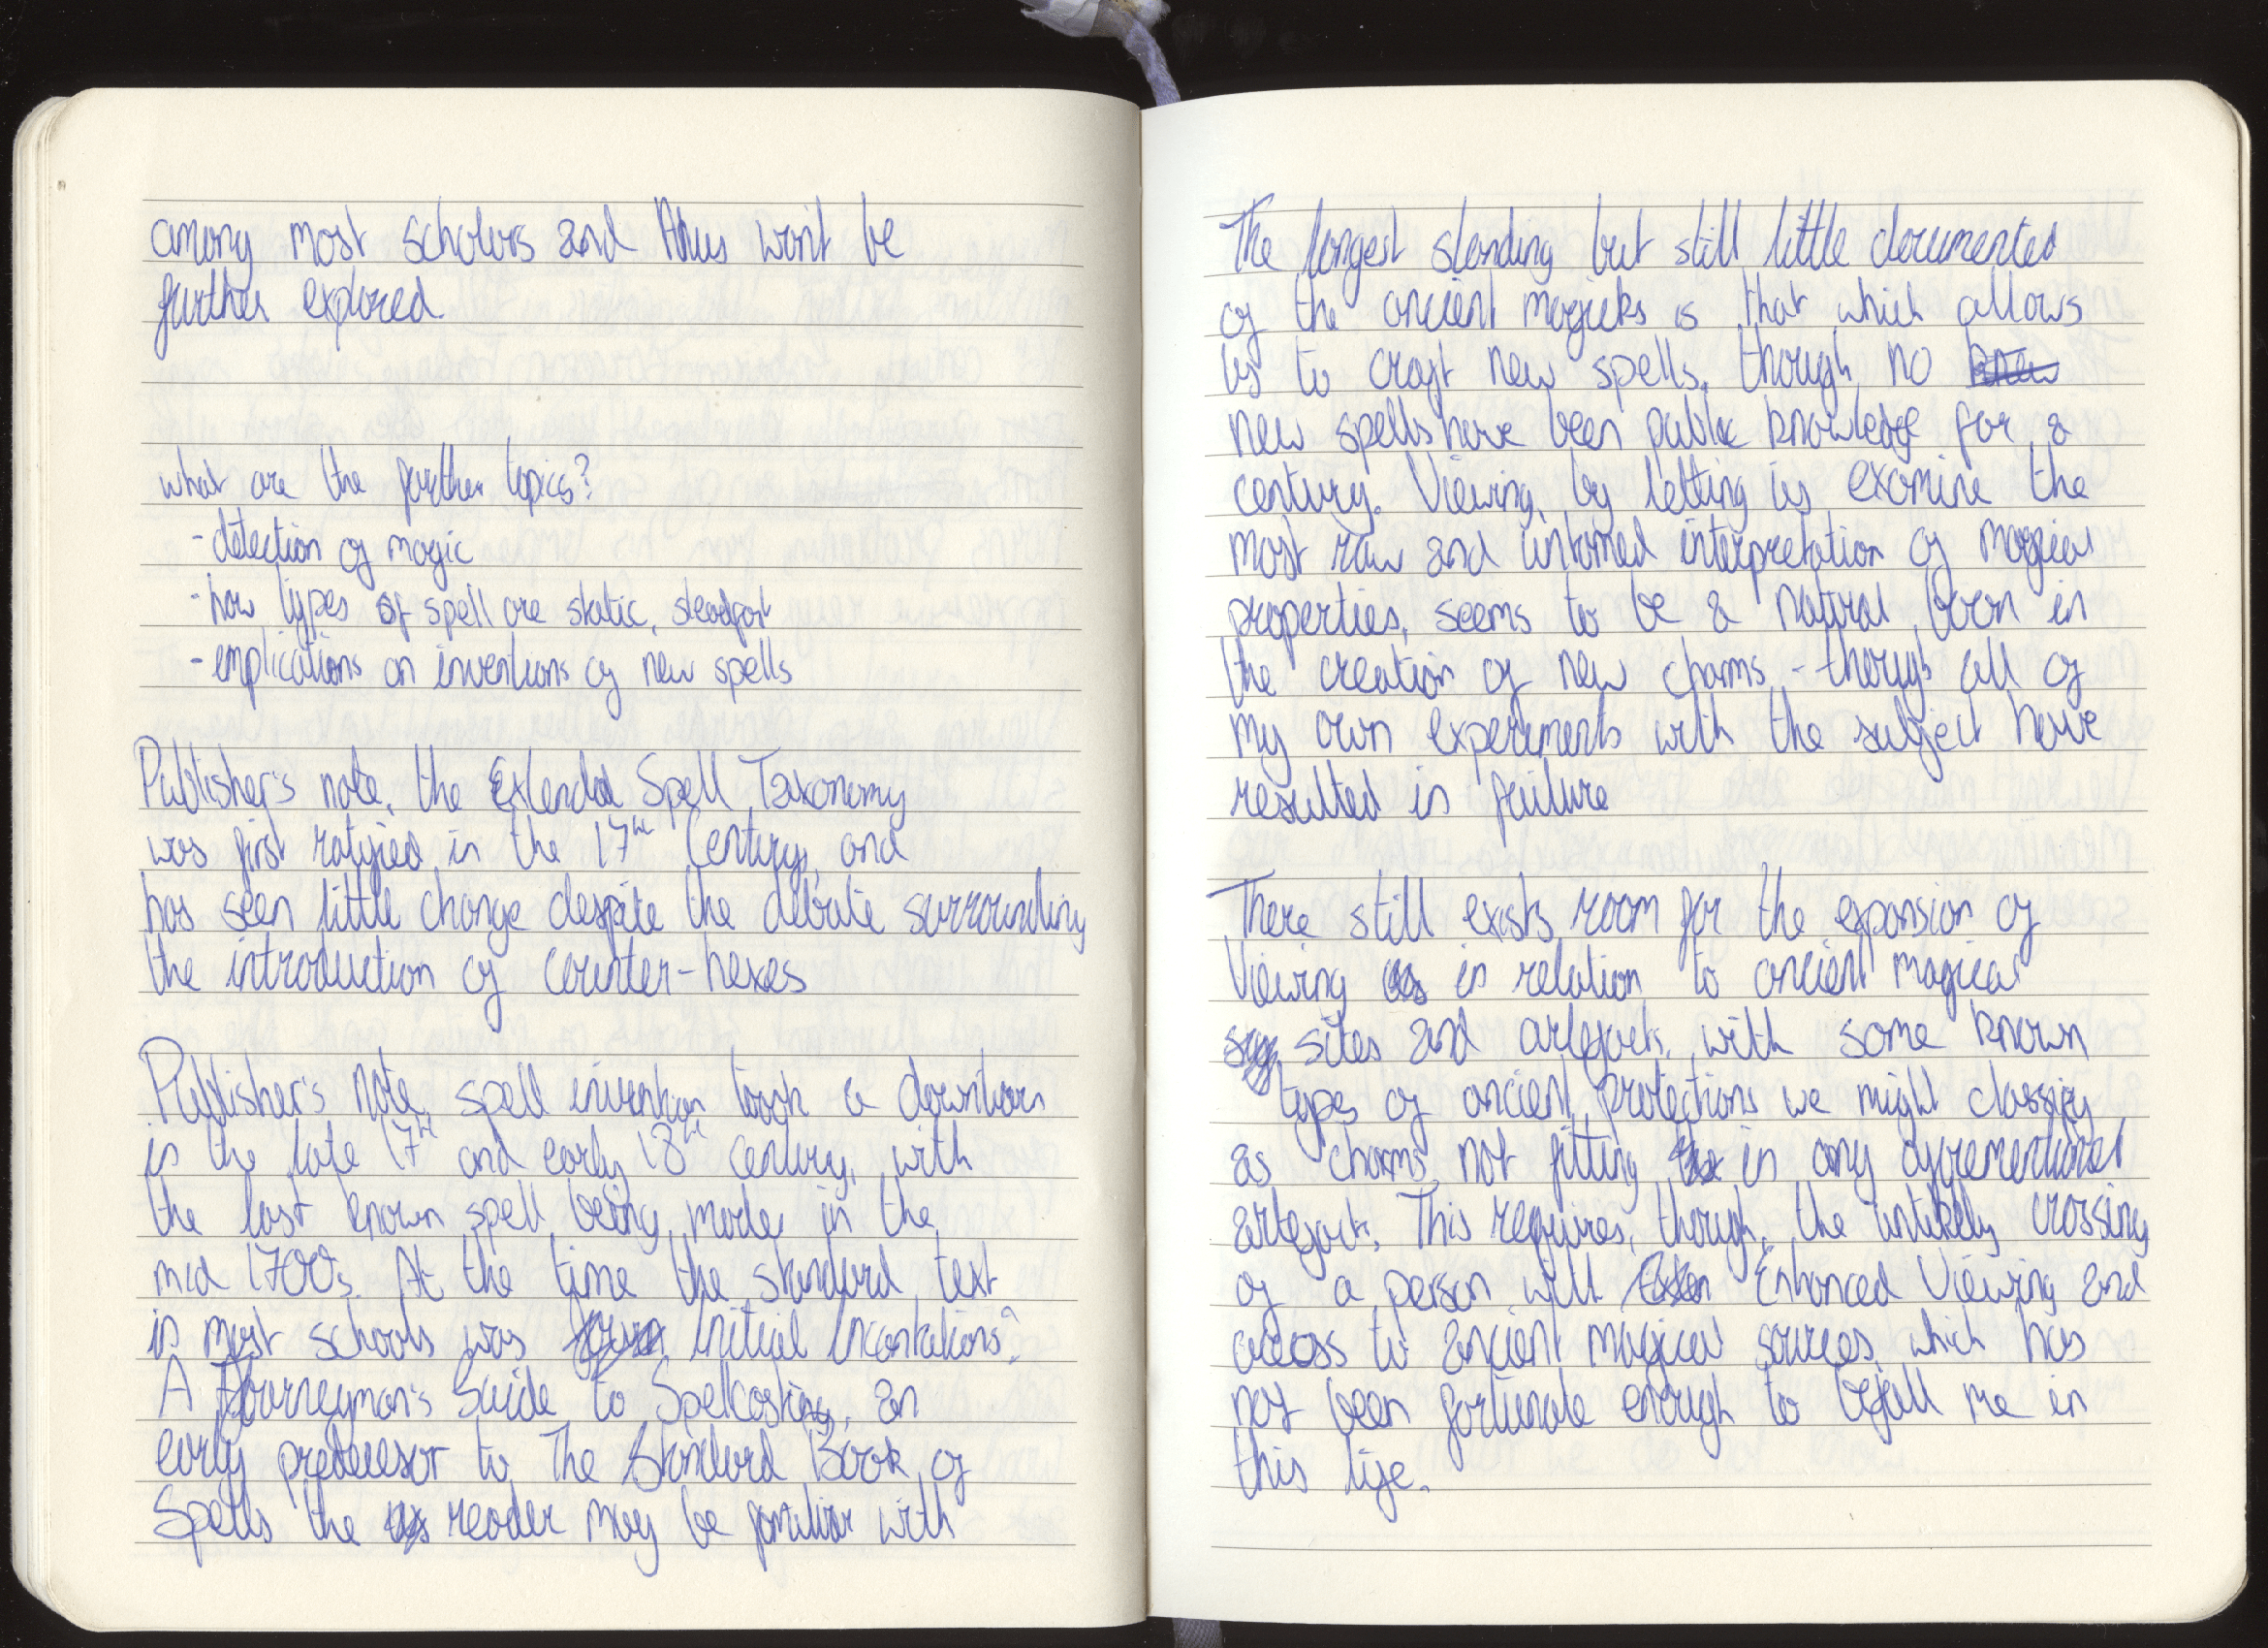 among most scholars and thus won't be
further explored
what are the further topics?
- detection of magic
- how types of spell are static, steadfast
- implications on inventions of new spells
Publisher's note, the Extended Spell Taxonomy
was first ratified in the 17th Century, and
has seen little change despite the debate surrounding
the introduction of counter-hexes
Publisher's note, spell invention took a downturn
in the late 17th and early 18th century, with
the last known spell being made in the
mid 1700s. At the time the standard text
in most schools was Initial Incantations:
A Journeyman's Guide to Spellcasting, an
early predecessor to The Standard Book of
Spells the reader may be familiar with
The longest standing but still little documented
of the ancient magicks is that which allows
us to craft new spells, though no knew
new spells have been public knowledge for a
century. Viewing, by letting us examine the
most raw and untamed interpretation of magical
properties, seems to be a natural boon in
the creation of new charms - though all of
my own experiments with the subject have
resulted in failure
There still exists room for the expansion of
Viewing in relation to ancient magical
sites and artefacts, with some known
types of ancient protections we might classify
as charms not fitting in any
artefacts. This requires, though, the unlikely crossing
of a person with Enhanced Viewing and
access to ancient magical sources, which has
not been fortunate enough to befall me in
this life.